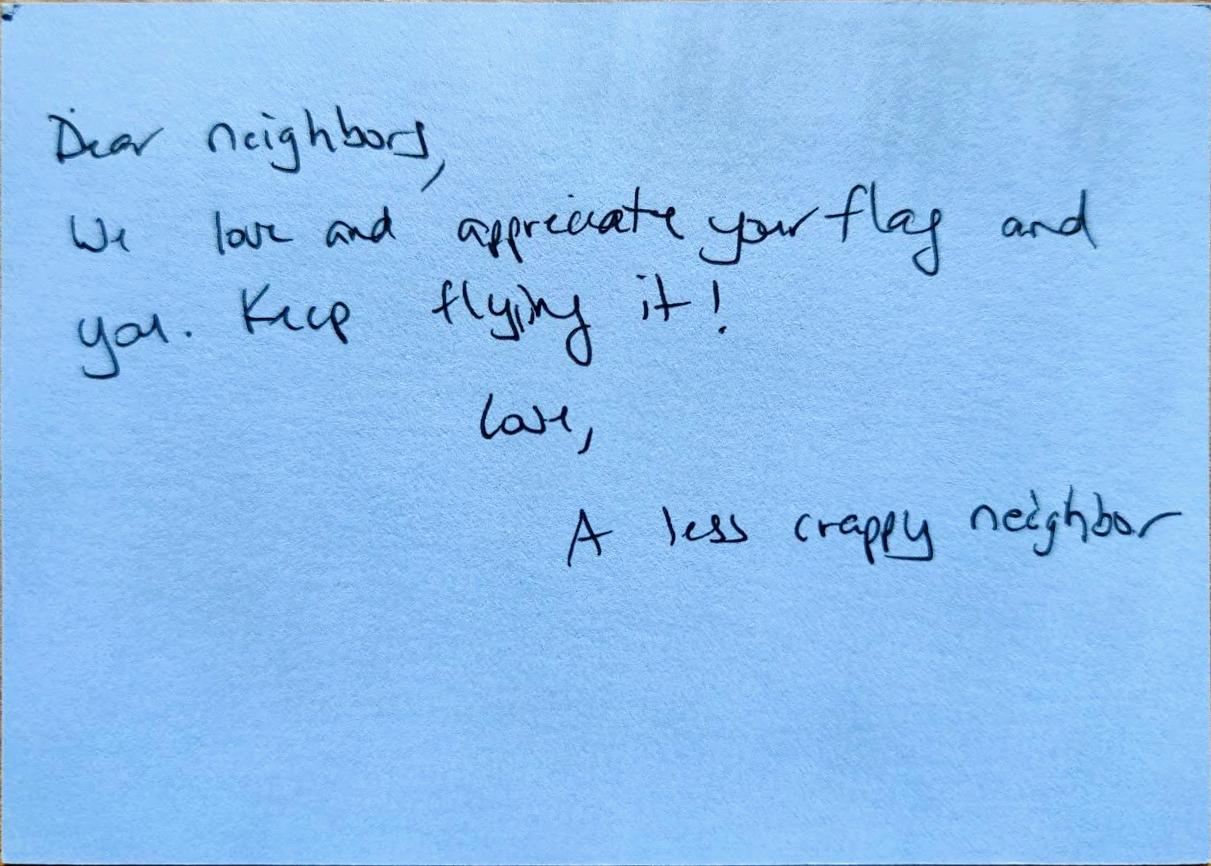 Dear neighbors,
We love and appreciate your flag and
you. Keep flying it!
Love,
A less crappy neighbor